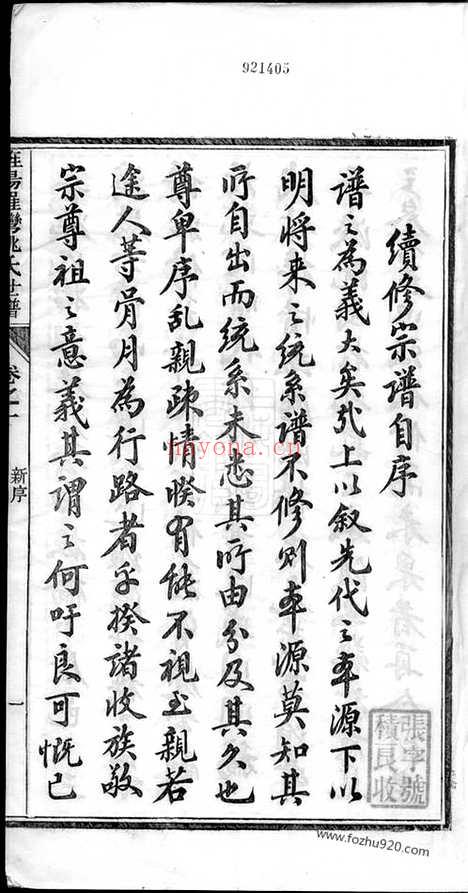 921405
續修宗譜自序
譜之為義大矣哉上以敘先代之本源下以
明將來之統系譜不修則本源莫知其
所自出而統系未悉其所由分及其久也
尊卑序乱親疎情睽有能不視至親若
途人等骨月為行路者乎揆諸收族敬
宗尊祖之意義其謂之何吁良可慨已
氏世譜
卷之一
新序
一
張字號
積良收
hayona.cn
www.fozhu920.com